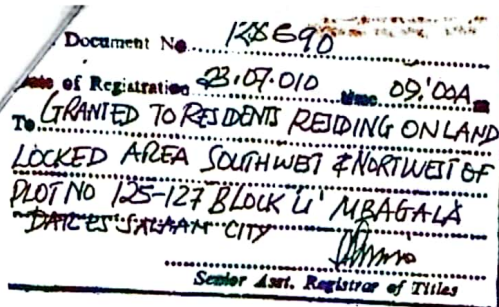 Document No. 128690
Date of Registration 23.07.010 time 09:00A m
To GRANTED TO RESIDENTS RESIDING ON LAND
LOCKED AREA SOUTHWEST & NORTWEST OF
PLOT NO 125-127 BLOCK 'U' MBAGALA
DAR ES SALAAM CITY
Senior Asst. Registrar of Titles